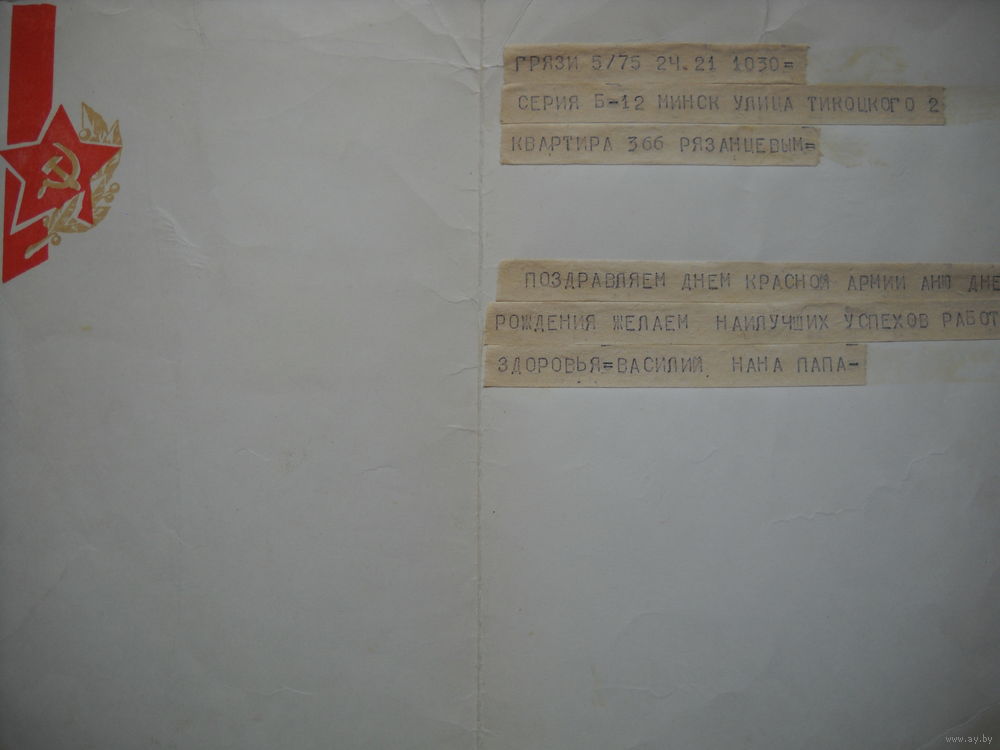 ГРЯЗИ 5/75 24.21 1030=
СЕРИЯ Б-12 МИНСК УЛИЦА ТИКОЦКОГО 2
КВАРТИРА 366 РЯЗАНЦЕВЫМ=
ПОЗДРАВЛЯЕМ ДНЕМ КРАСНОЙ АРМИИ АНЮ ДНЕ
РОЖДЕНИЯ ЖЕЛАЕМ НАИЛУЧШИХ УСПЕХОВ РАБОТ
ЗДОРОВЬЯ=ВАСИЛИЙ НАНА ПАПА-
www.ay.by